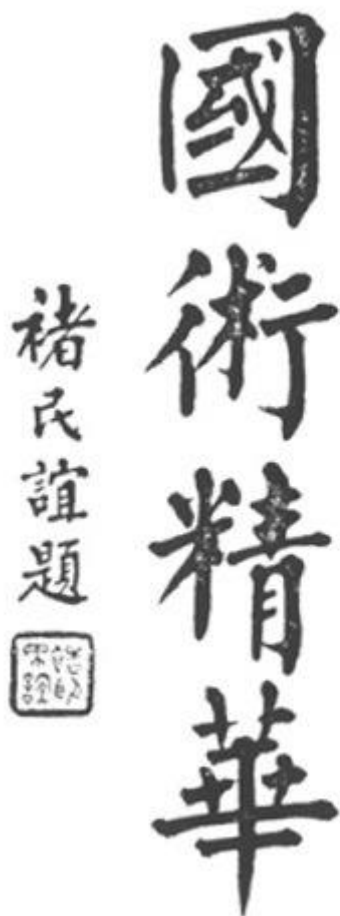 國術精華
褚民誼題